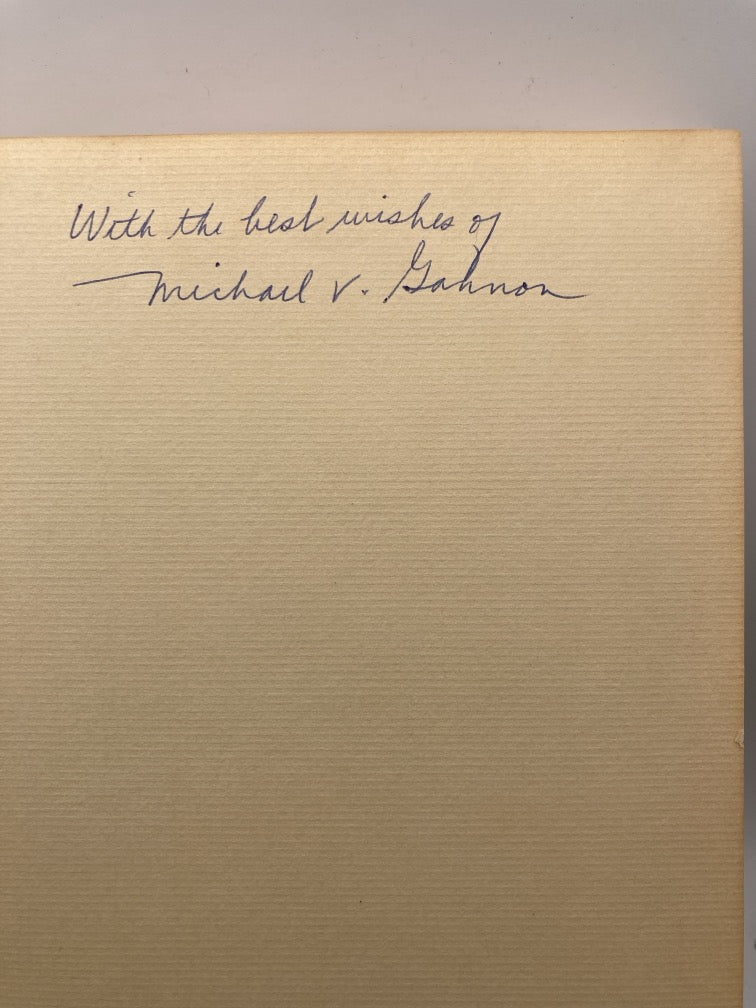 With the best wishes of
Michael V. Gannon